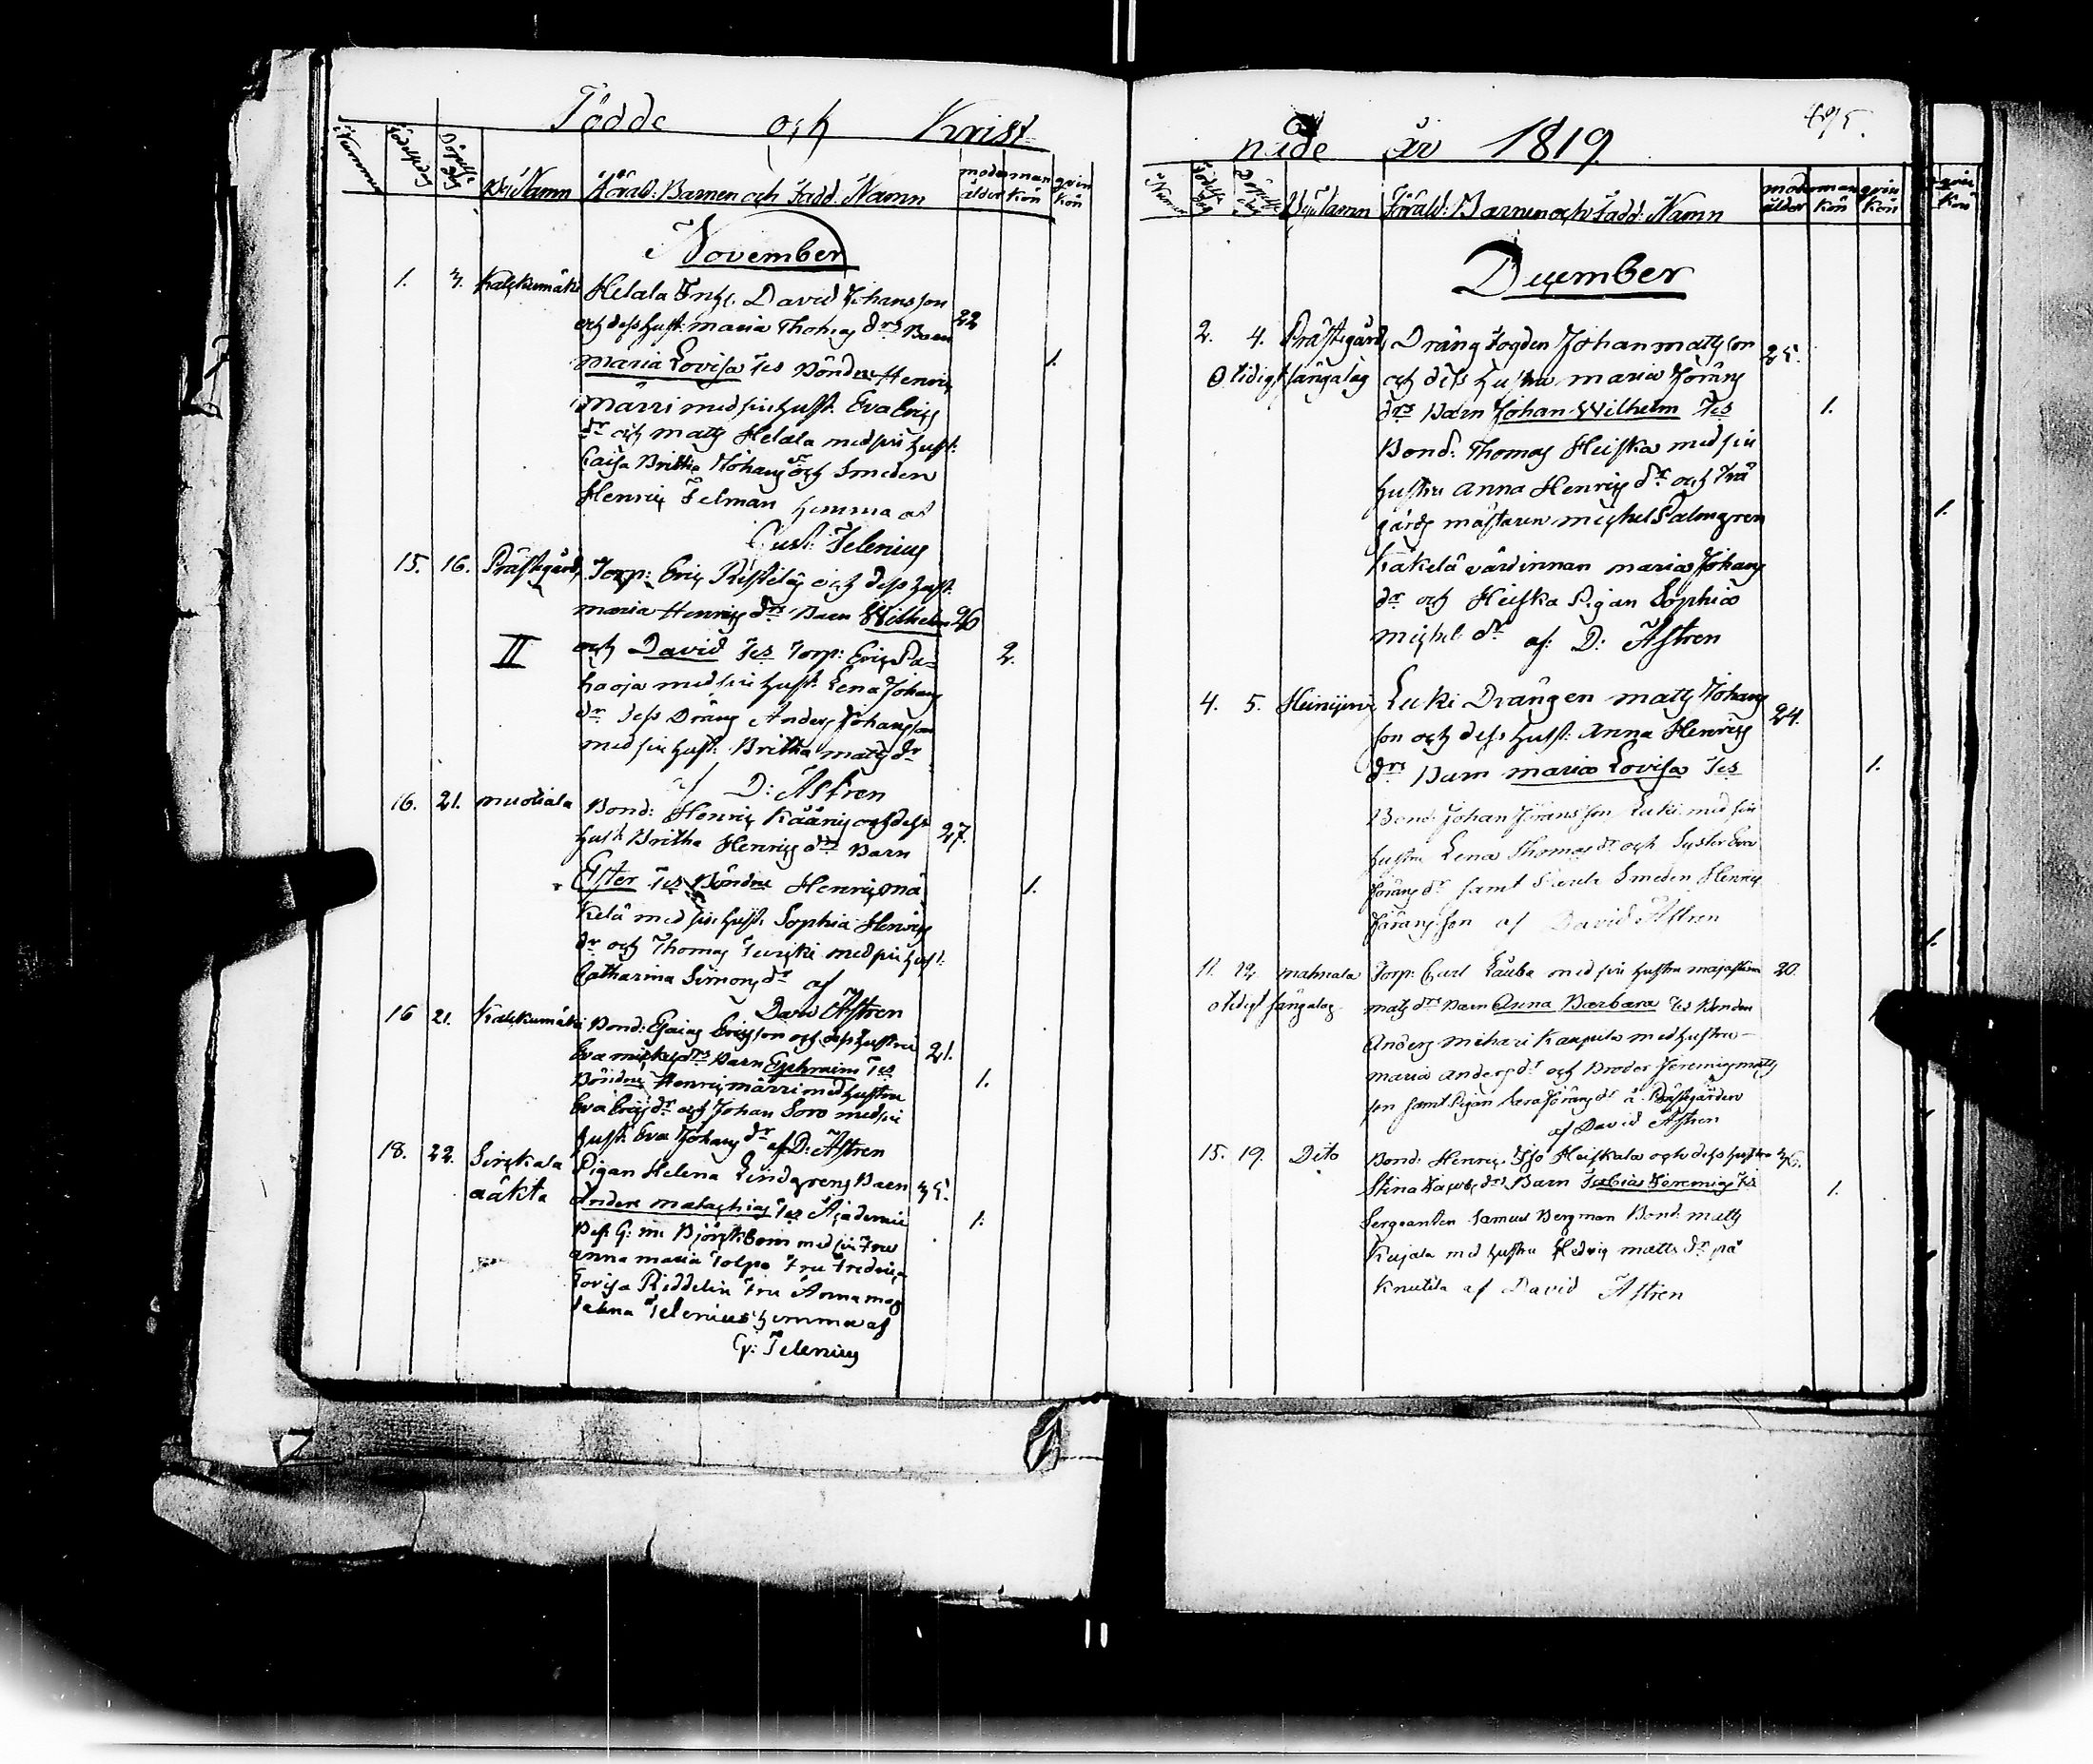 Födde och Krist-
Födelsedag Döpelse dag By Namn Föräld: Barnen och Fadd: Namn moder ålder man kön qvin kön
November
1. 3. Kalckumäki Helala Inh: David Johansson 22
och dess hust: maria Thomas drs Barn
Maria Lovisa Tes Bönderne Henric 1.
Marri med sin hust. Eva Erics
dr och matts Helala med sin hust:
Caisa Britha Johans dr och Smeden
Henric Felman hemma af
Gust: Telenius
15. 16. Prästgård Torp: Eric Ristelä och dess hust.
maria Henrics drs Barn Wilhelm 26
II och David Tes Torp: Eric Pa- 2.
haoja med sin hust: Lena Johans
dr dess Dräng Anders Johansson
med sin hust: Britha mats dr
af D: Astren
16. 21. muotiala Bond: Henric Kääric och dess 27.
hust: Britha Henrics drs Barn
Ester Tes Bönderne Henric mä 1.
kelä med sin hust: Sophia Henrics
dr och Thomas Turcki med sin hust:
Catharina Simons dr af
David Astren
16 21. Kalckumäki Bond: Esaias Ericsson och dess hustru 21.
Eva michels drs Barn Ephraim Tes 1.
Bönderne Henric märri med hustru
Eva Erics dr och Johan Soro med sin
hust: Eva Johans dr af D: Astren
18. 22. Sirckala Pigan Helena Lindgrens Barn 35.
oäkta Anders malachias Tes Academie 1.
Bef: G: m: Björckbom med sin Fru
anna maria Tolpo Fru Fredrica
Lovisa Riddelin Fru Anna mag
dalena Telenius hemma af
G: Telenius
nade år 1819.
By Namn Föräld: Barnen och Fadd: Namn moder ålder man kön qvin kön
December
2. 4. Prästgård Dräng Fogden Johan mattsson 25.
Otidigt sängalag och dess hustru maria Jörans
drs Barn Johan Wilhelm Tes 1.
Bond: Thomas Heiska med sin
hustru Anna Henrics dr och Trä
gårds mästaren michel Palmgren
Käkelä värdinnan maria Johans
dr och Heiska Pigan Sophia
michels dr af D: Astren
4. 5. Luki Drängen matts Johans 24.
son och dess hust: Anna Henrics
drs Barn maria Lovisa Tes 1.
Bond: Johan Jöransson Luki med sin
hustru Lena Thomas dr och Syster Eva
Jörans dr samt Smeden Henric
Jöransson af David Astren
11. 12. Torp: Carl Lauba med sin hustru 20.
otidigt sängalag mats drs Barn Anna Barbara Tes Bonden
Anders mihari Kaupila med hustru
maria Anders dr och Broder Jeremias matts
son samt Pigan Jörans dr å Prästgården
af David Astren
15. 19. Dito Bond: Henric Iso Heiskala och dess hustru 36.
Stina Jacobs drs Barn Tobias Jeremias Tes 1.
Sergeanten Samuel Bergman Bond: matts
Kujala med hustru Hedvig matts dr på
Knutila af David Astren